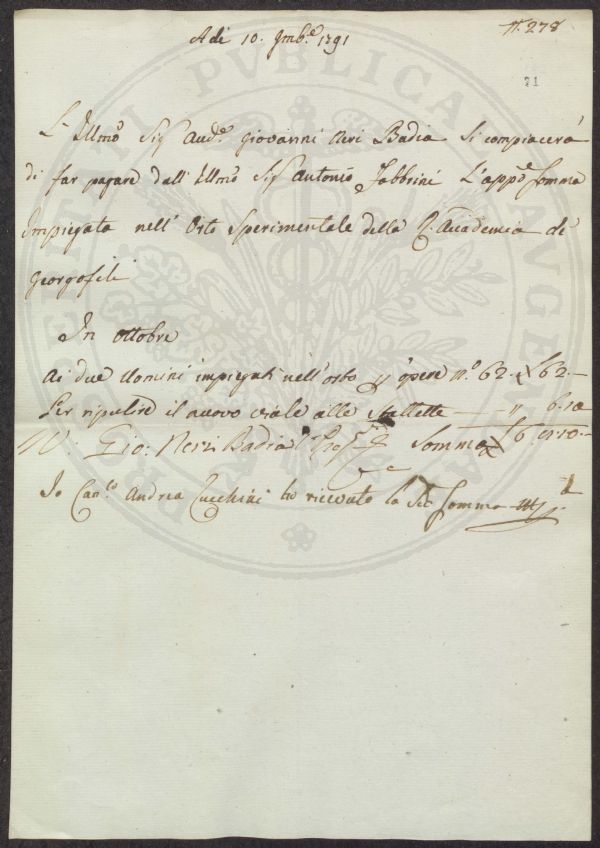 N. 278
Adi 10. 9mb.e 1791
71
L'Illmo Sig Aud.e Giovanni Neri Badia si compiacerà
di far pagare dall'Illmo Sig Antonio Fabbrini L'app.e somma
Impiegata nell'Orto Sperimentale della R. Accademia di
Georgofili
In ottobre
Ai due Uomini impiegati nell'orto p opere n.o 62. £ 62.—
Per ripulire il nuovo viale alle Stallette — " 6.10
V. Gio: Neri Badia Somma £
Io Can.co Andrea Zucchini ho ricevuto la Sud. somma
PROSPERITATI PUBLICAE AUGENDAE